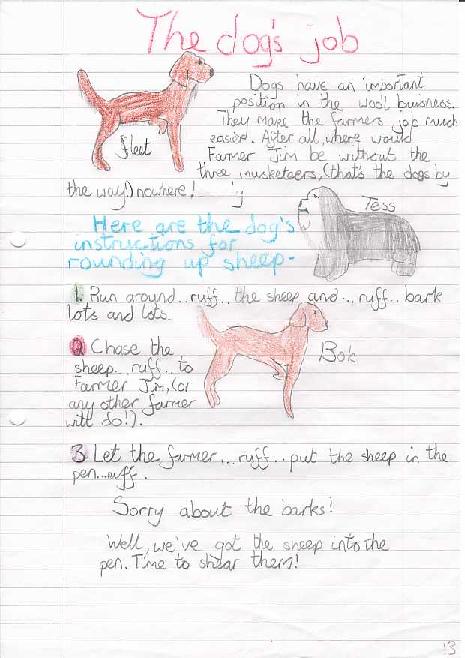 The dog's job
Dogs have an important
position in the wool buisness.
They make the farmers job much
easier. After all, where would
Farmer Jim be without the
three musketeers, (that's the dogs by
the way!) nowhere!
fleet
Tess
Here are the dog's
instructions for
rounding up sheep-
1. Run around.. ruff... the sheep and... ruff... bark
lots and lots.
2 Chase the
sheep... ruff... to
Farmer Jim, (or
any other farmer
will do!).
Bok
3. Let the farmer... ruff... put the sheep in the
pen... ruff.
Sorry about the barks!
Well, we've got the sheep into the
pen. Time to shear them!
13